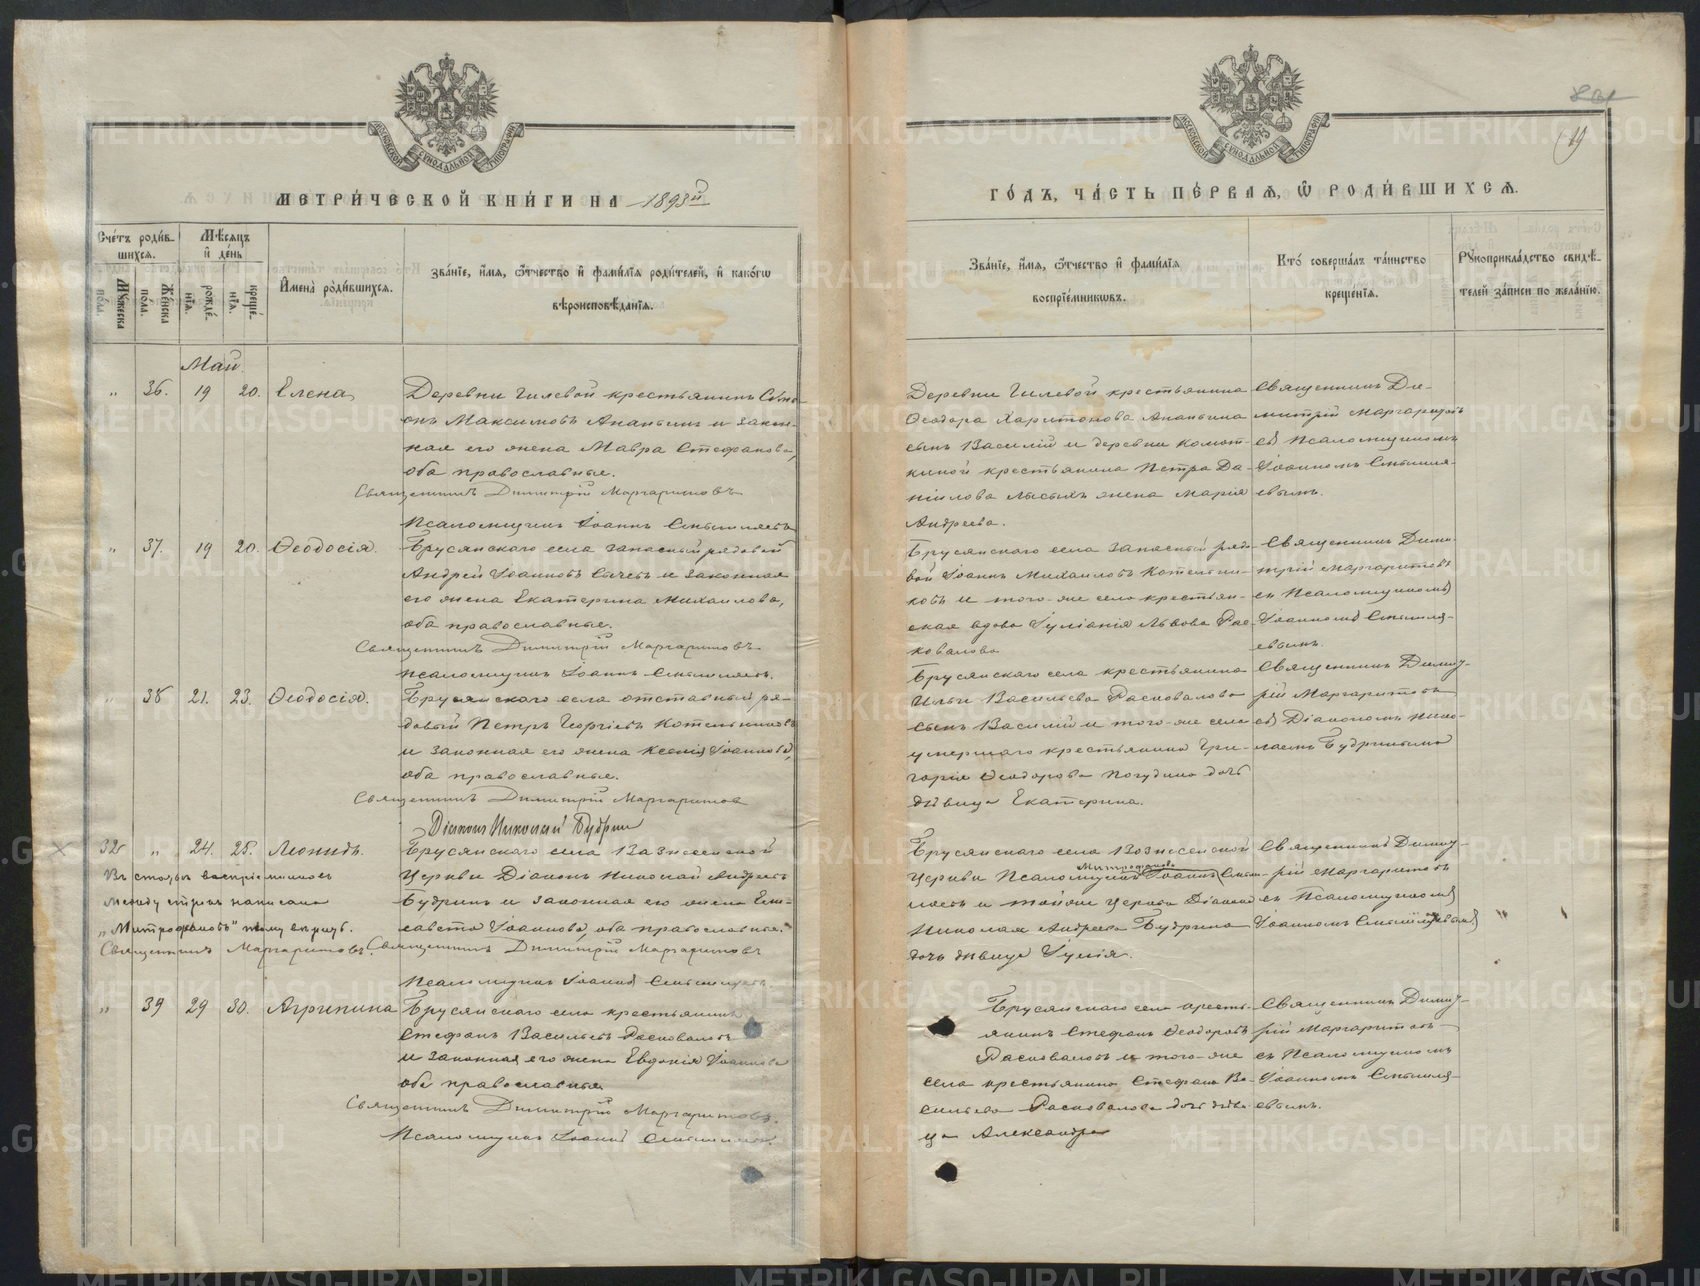 МЕТРИ́ЧЕСКОЙ КНИ́ГИ НА 1893й
ГО́ДЪ, ЧА́СТЬ ПЕ́РВАѦ, Ѡ҆ РОДИ́ВШИХСѦ.
19
МОСКОВСКОЙ СѴНОДАЛЬНОЙ ТИПОГРАФІИ
МОСКОВСКОЙ СѴНОДАЛЬНОЙ ТИПОГРАФІИ
Сче́тъ роди́в-
шихсѧ.
Мꙋ́жеска по́ла.
Же́нска по́ла.
Мѣ́сѧцъ
и҆ де́нь
рожде́-нїѧ.
креще́-нїѧ.
И҆мена̀ роди́вшихсѧ.
Зва́нїе, и҆́мѧ, ѻ҆́тчество и҆ фами́лїѧ роди́телей, и҆ како́гѡ
вѣроисповѣ́данїѧ.
Зва́нїе, и҆́мѧ, ѻ҆́тчество и҆ фами́лїѧ
воспрїе́мникѡвъ.
Кто̀ соверша́лъ та́инство
креще́нїѧ.
Рꙋкоприкла́дство свидѣ́-
телей за́писи по жела́нїю.
Май.
" 36. 19 20. Елена
Деревни Гилевой крестьянинъ Симе-
онъ Максимовъ Ананьинъ и закон-
ная его жена Мавра Стефанова,
оба православные.
Священникъ Димитрій Маргаритовъ
Псаломщикъ Іоаннъ Смышляевъ
Деревни Гилевой крестьянина
Ѳеодора Харитонова Ананьина
сынъ Василій и деревни Комот-
киной крестьянина Петра Да-
ніилова Лысыхъ жена Марія
Андреева.
Священникъ Ди-
митрій Маргаритовъ
съ Псаломщикомъ
Іоанномъ Смышля-
евымъ.
" 37. 19 20. Ѳеодосія.
Брусянскаго села запасный рядовой
Андрей Іоанновъ Сычевъ и законная
его жена Екатерина Михаилова,
оба православные.
Священникъ Димитрій Маргаритовъ
Псаломщикъ Іоаннъ Смышляевъ.
Брусянскаго села запасный рядо-
вой Іоаннъ Михаиловъ Котельни-
ковъ и того-же села крестьян-
ская вдова Іуліанія Львова Рас-
ковалова
Священникъ Дими-
трій Маргаритовъ
съ Псаломщикомъ
Іоанномъ Смышля-
евымъ.
" 38 21. 23. Ѳеодосія.
Брусянскаго села отставный ря-
довый Петръ Георгіевъ Котельниковъ
и законная его жена Ксенія Іоаннова,
оба православные.
Священникъ Димитрій Маргаритовъ
Діаконъ Николай Будринъ
Брусянскаго села крестьянина
Ильи Васильева Расковалова
сынъ Василій и того-же села
умершаго крестьянина Гри-
горія Ѳеодорова Погудина дочь
дѣвица Екатерина.
Священникъ Димит-
рій Маргаритовъ
съ Діакономъ Нико-
лаемъ Будринымъ
32 " 24. 25. Леонидъ.
Въ статьѣ воспріемниковъ
между строкъ написано
„Митрофановъ" тому вѣрить.
Священникъ Маргаритовъ.
Брусянскаго села Вознесенской
Церкви Діаконъ Николай Андреевъ
Будринъ и законная его жена Ели-
савета Іоаннова, оба православные.
Священникъ Димитрій Маргаритовъ
Псаломщикъ Іоаннъ Смышляевъ.
Брусянскаго села Вознесенской
Митрофановъ
Церкви Псаломщикъ Іоаннъ Смыш-
ляевъ и той-же церкви Діакона
Николая Андреева Будрина
дочь дѣвица Іулія.
Священникъ Димит-
рій Маргаритовъ
съ Псаломщикомъ
Іоанномъ Смышляевымъ
" 39 29 30. Агрипина
Брусянскаго села крестьянинъ
Стефанъ Васильевъ Расковаловъ
и законная его жена Евдокія Іоаннова
оба православные
Священникъ Димитрій Маргаритовъ.
Псаломщикъ Іоаннъ Смышляевъ.
Брусянскаго села кресть-
янинъ Стефанъ Ѳеодоровъ
Расковаловъ и того-же
села крестьянина Стефана Ва-
сильева Расковалова дочь дѣви-
ца Александра
Священникъ Димит-
рій Маргаритовъ
съ Псаломщикомъ
Іоанномъ Смышля-
евымъ.
METRIKI.GASO-URAL.RU